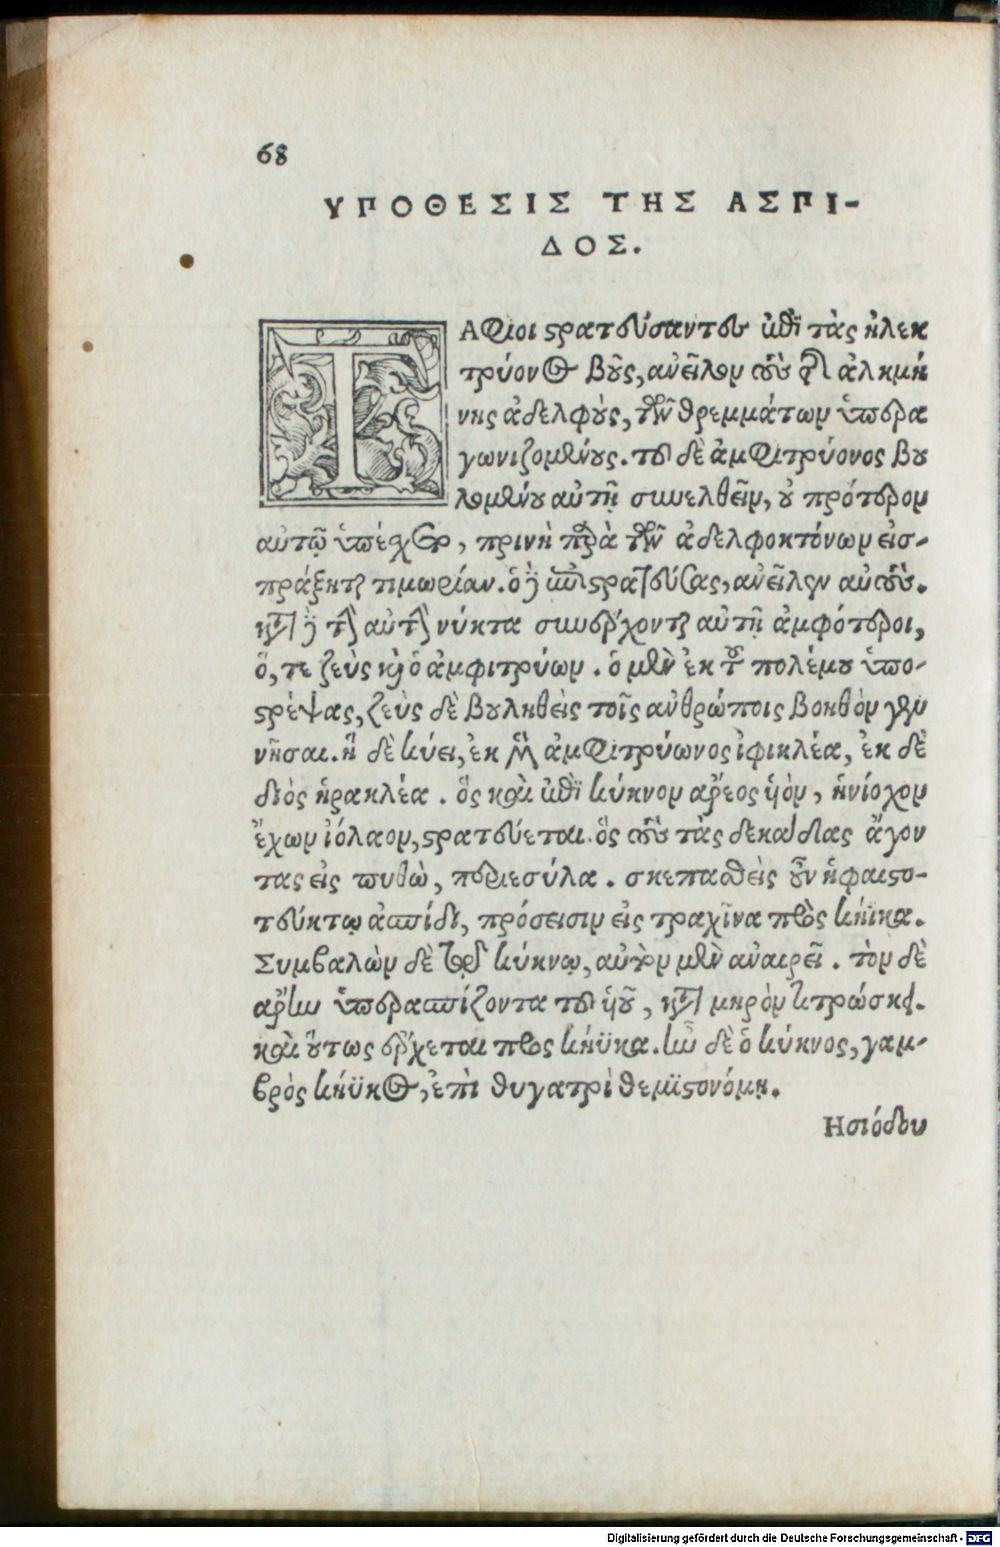 68
ΥΠΟΘΕΣΙΣ ΤΗΣ ΑΣΠΙ-
ΔΟΣ.
ΤΑφιοι στρατεύσαντες ἐπὶ τὰς ἠλεκ
τρύονος βοῦς, ἀνεῖλον τοὺς τῆς ἀλκμή
νης ἀδελφοὺς, τῶν θρεμμάτων ὑπερα
γωνιζομένους. τοῦ δὲ ἀμφιτρύονος βου
λομένου αὐτῇ συνελθεῖν, οὐ πρότερον
αὐτῷ ὑπέσχετο, πρινὴ παρὰ τῶν ἀδελφοκτόνων εἰσ-
πράξηται τιμωρίαν. ὁ δὲ ἐπιστρατεύσας, ἀνεῖλεν αὐτούς.
κατὰ δὲ τὴν αὐτὴν νύκτα συνέρχονται αὐτῇ ἀμφότεροι,
ὅ, τε ζεὺς καὶ ὁ ἀμφιτρύων. ὁ μὲν ἐκ τοῦ πολέμου ὑπο-
στρέψας, ζεὺς δὲ βουληθεὶς τοῖς ἀνθρώποις βοηθὸν γεν
νῆσαι. ἡ δὲ κύει, ἐκ μὲν ἀμφιτρύωνος ἰφικλέα, ἐκ δὲ
διὸς ἡρακλέα. ὃς καὶ ἐπὶ κύκνον ἄρεος ὑὸν, ἡνίοχον
ἔχων ἰόλαον, στρατεύεται. ὃς τοὺς τὰς δεκαδίας ἄγον
τας εἰς πυθὼ, περιεσύλα. σκεπασθεὶς οὖν ἡφαιστο-
τεύκτῳ ἀσπίδι, πρόσεισιν εἰς τραχῖνα πρὸς κήϊκα.
Συμβαλὼν δὲ τῷ κύκνῳ, αὐτὸν μὲν ἀναιρεῖ. τὸν δὲ
ἄρην ὑπερασπίζοντα τοῦ ὑοῦ, κατὰ μηρὸν τιτρώσκει.
καὶ οὕτως ἔρχεται πρὸς κήϋκα. ἦν δὲ ὁ κύκνος, γαμ-
βρὸς κήϋκος, ἐπὶ θυγατρὶ θεμιστονόμῃ.
Ησιόδου
Digitalisierung gefördert durch die Deutsche Forschungsgemeinschaft - DFG